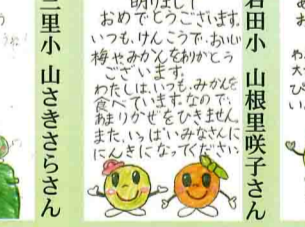 岩田小 山根里咲子さん
明けまして
おめでとうございます。
いつも、けんこうで、おいしい
梅やみかんをありがとう
ございます。
わたしは、いつも、みかんを
食べています。なので、
あまりかぜをひきません。
また、いっぱいみなさんに
にんきになってください
二里小 山さきさらさん